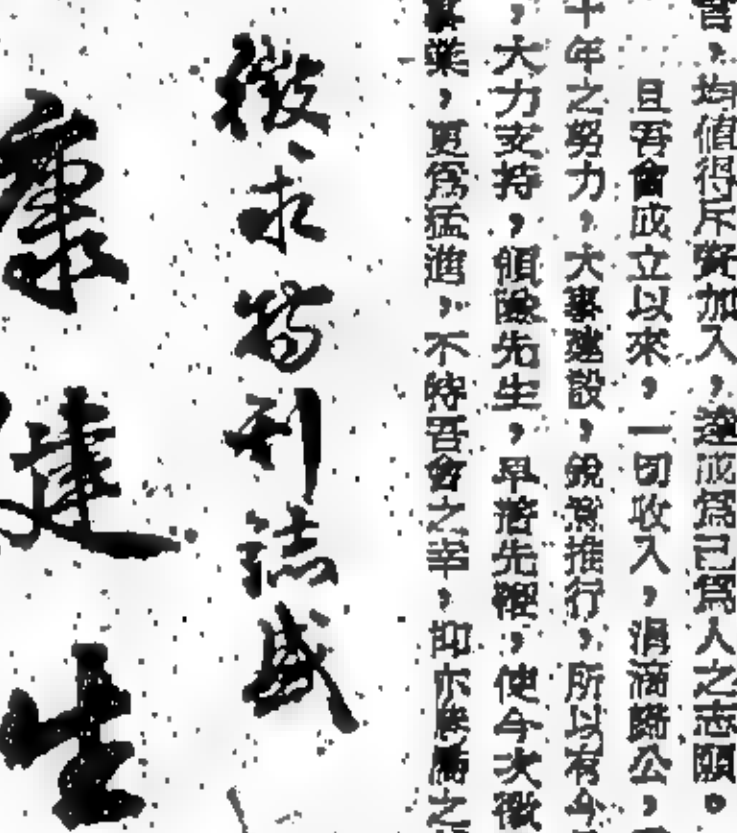 會，均值得斥資加入，達成爲己爲人之志願。
且吾會成立以來，一切收入，涓滴歸公，
十年之努力，大事建設，銳意推行，所以有今
，大力支持，領隊先生，早着先鞭，使今次徵
業，更爲猛進，不特吾會之幸，抑亦之
徵求特刊誌盛
康健生